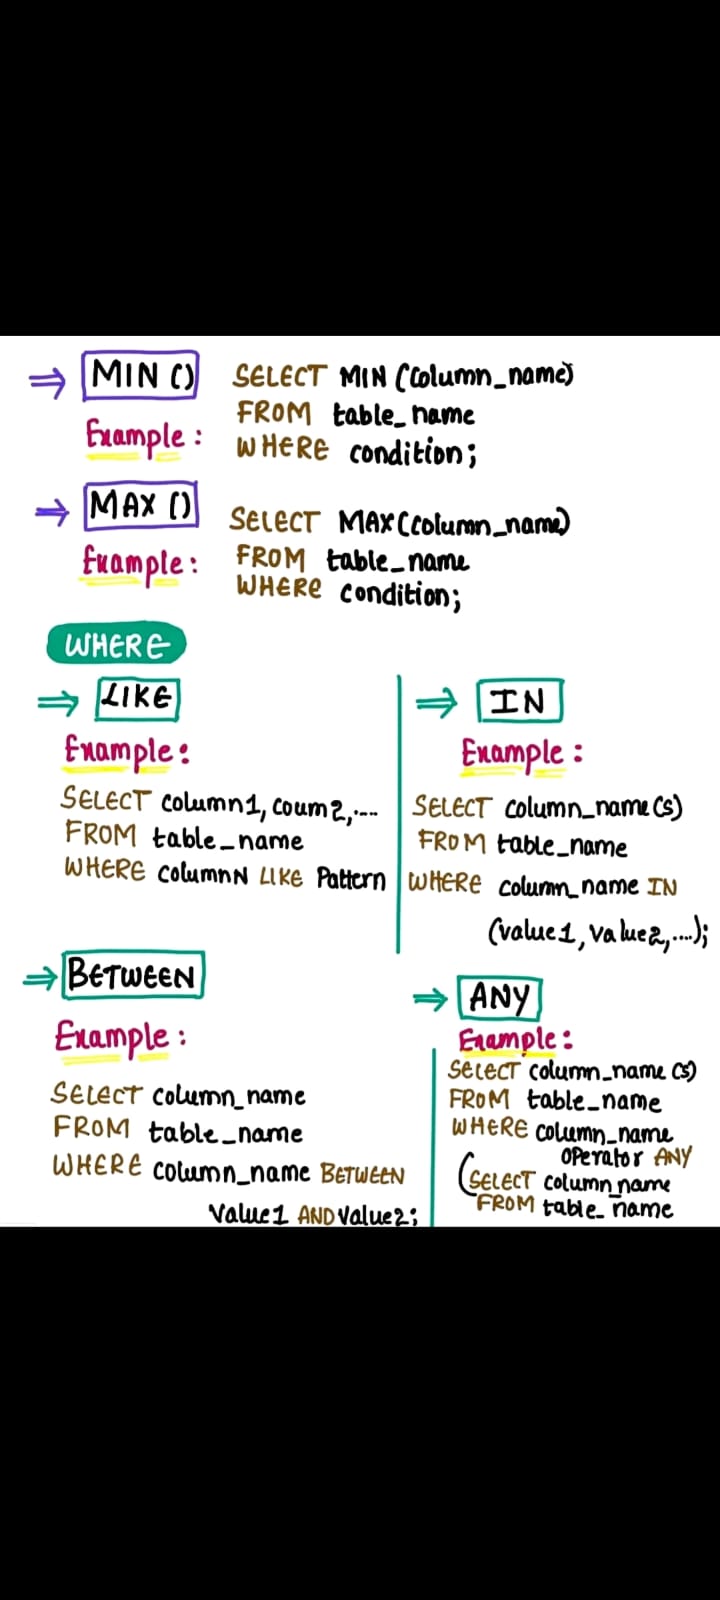 ⇒ MIN ()
SELECT MIN (column_name)
FROM table_name
Example :
WHERE condition;
⇒ MAX ()
SELECT MAX (column_name)
Example :
FROM table_name
WHERE condition;
WHERE
⇒ LIKE
Example :
SELECT column1, coum2,....
FROM table_name
WHERE columnN LIKE Pattern
⇒ IN
Example :
SELECT column_name(s)
FROM table_name
WHERE column_name IN
(value1, value2,....);
⇒ BETWEEN
Example :
SELECT column_name
FROM table_name
WHERE column_name BETWEEN
Value1 AND Value2;
⇒ ANY
Example :
SELECT column_name(s)
FROM table_name
WHERE column_name
operator ANY
(SELECT column_name
FROM table_name